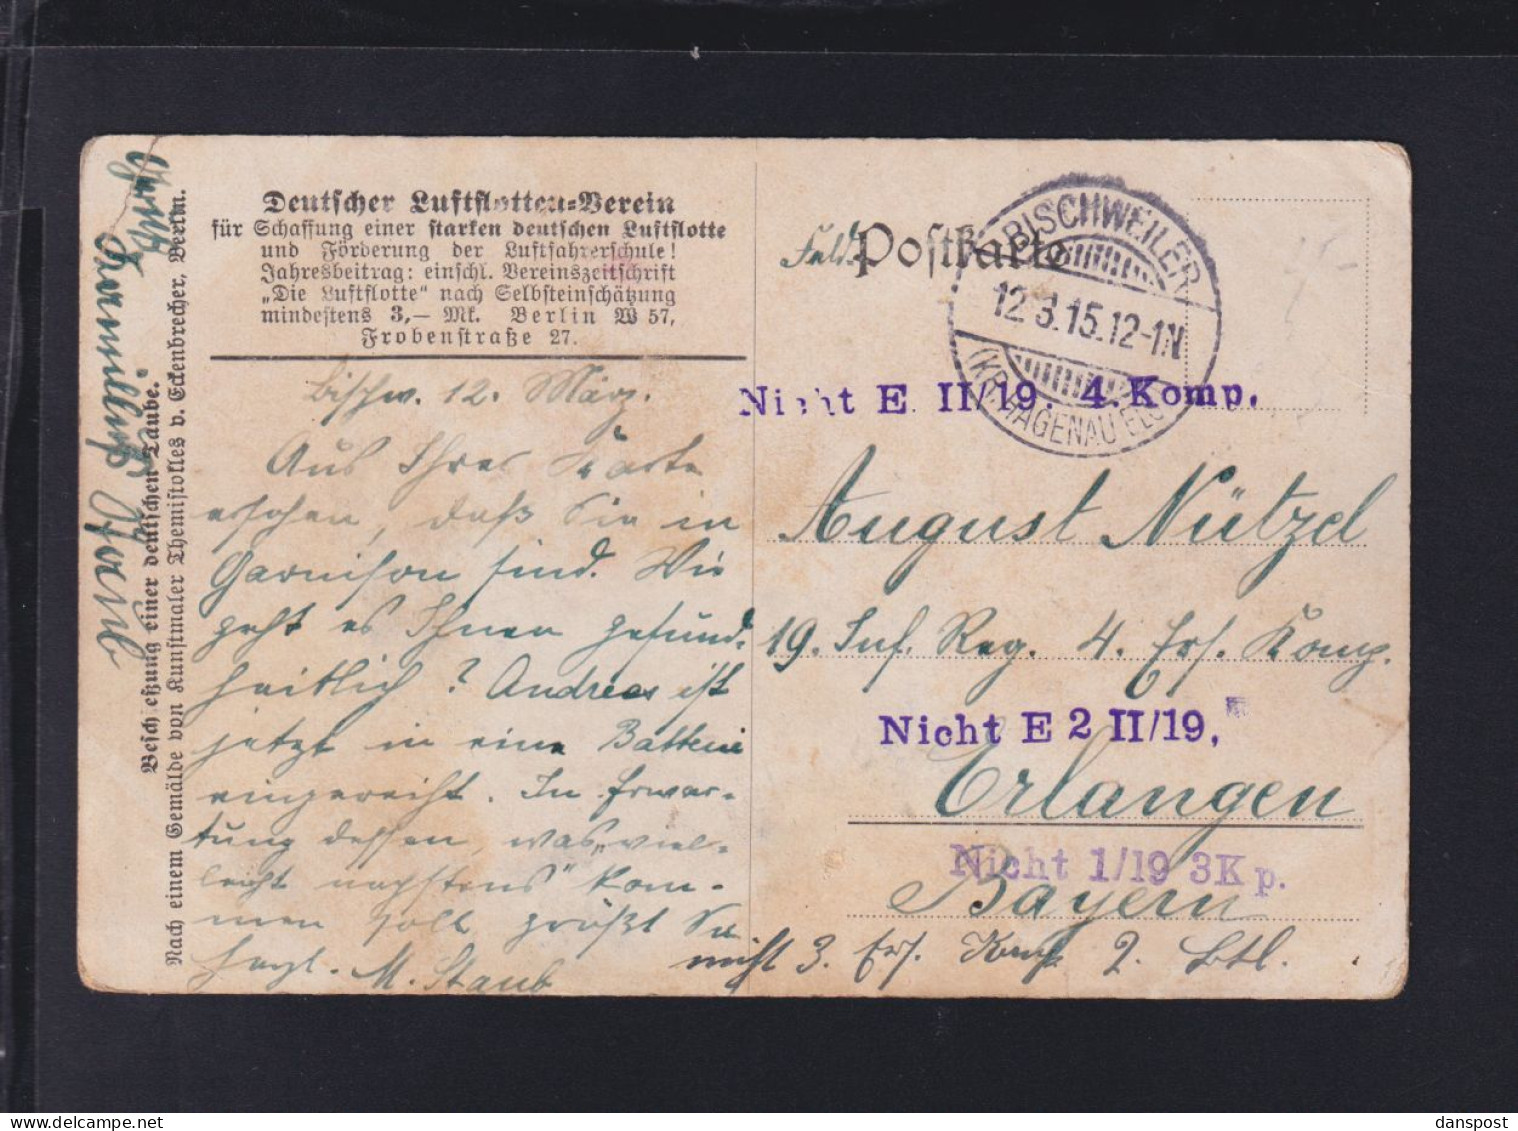 Deutscher Luftflotten-Verein
für Schaffung einer starken deutschen Luftflotte
und Förderung der Luftfahrerschule!
Jahresbeitrag: einschl. Vereinszeitschrift
„Die Luftflotte“ nach Selbsteinschätzung
mindestens 3,— Mk. Berlin W 57,
Frobenstraße 27.
Bischw. 12. März.
Aus Ihrer Karte
ersehen, daß Sie in
Garnison sind. Wie
geht es Ihnen gesund-
heitlich? Andreas ist
jetzt in eine Batterie
eingereiht. In Erwar-
tung dessen, was „viel-
leicht nächstens“ kom-
men soll grüßt Sie
herzl. M. Staub
Familie Staub
Beschießung einer deutschen Taube.
Nach einem Gemälde von Kunstmaler Themistokles v. Eckenbrecher, Berlin.
Feld-Postkarte
BISCHWEILER
12.3.15.12-1N
(KR. HAGENAU ELS
Nicht E II/19 4. Komp.
August Nützel
19. Inf. Reg. 4. Ers. Komp.
Nicht E 2 II/19,
Erlangen
Nicht 1/19 3Kp.
Bayern
nicht 3. Ers. Komp. 2. Btl.
danspost